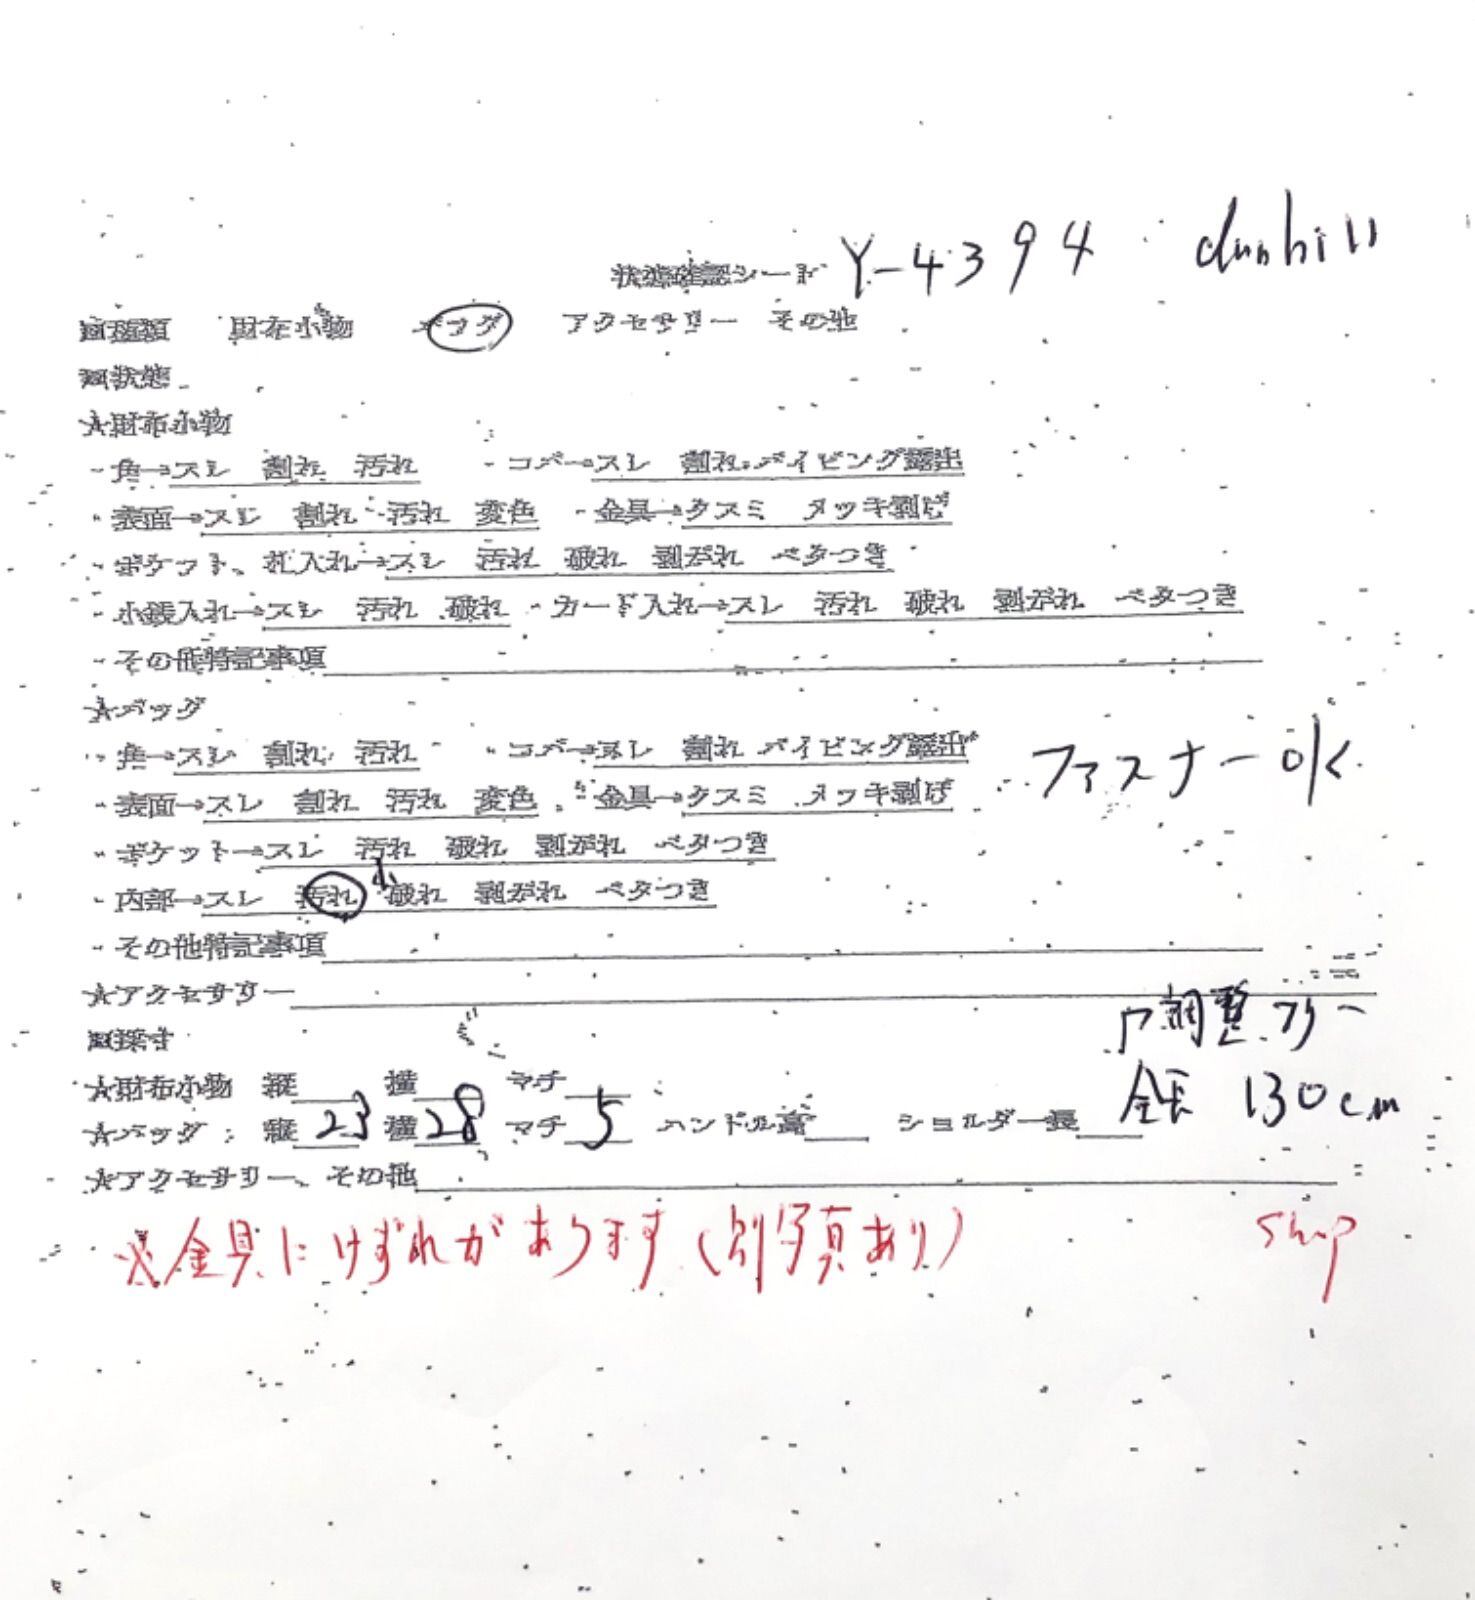 状態確認シート Y-4394 dunhill
■種類 財布小物 バッグ アクセサリー その他
■状態
★財布小物
・角→スレ 割れ 汚れ ・コバ→スレ 割れ パイピング露出
・表面→スレ 割れ 汚れ 変色 ・金具→クスミ メッキ剥げ
・ポケット、札入れ→スレ 汚れ 破れ 剥がれ ベタつき
・小銭入れ→スレ 汚れ 破れ ・カード入れ→スレ 汚れ 破れ 剥がれ ベタつき
・その他特記事項
★バッグ
・角→スレ 割れ 汚れ ・コバ→スレ 割れ パイピング露出
ファスナーok
・表面→スレ 割れ 汚れ 変色 ・金具→クスミ メッキ剥げ
・ポケット→スレ 汚れ 破れ 剥がれ ベタつき
・内部→スレ 汚れ 小 破れ 剥がれ ベタつき
・その他特記事項
★アクセサリー
■採寸
調整フリー
★財布小物 縦 横 マチ
全長 130cm
★バッグ: 縦23 横28 マチ5 ハンドル高 ショルダー長
★アクセサリー、その他
※金具にけずれがあります(別写真あり)